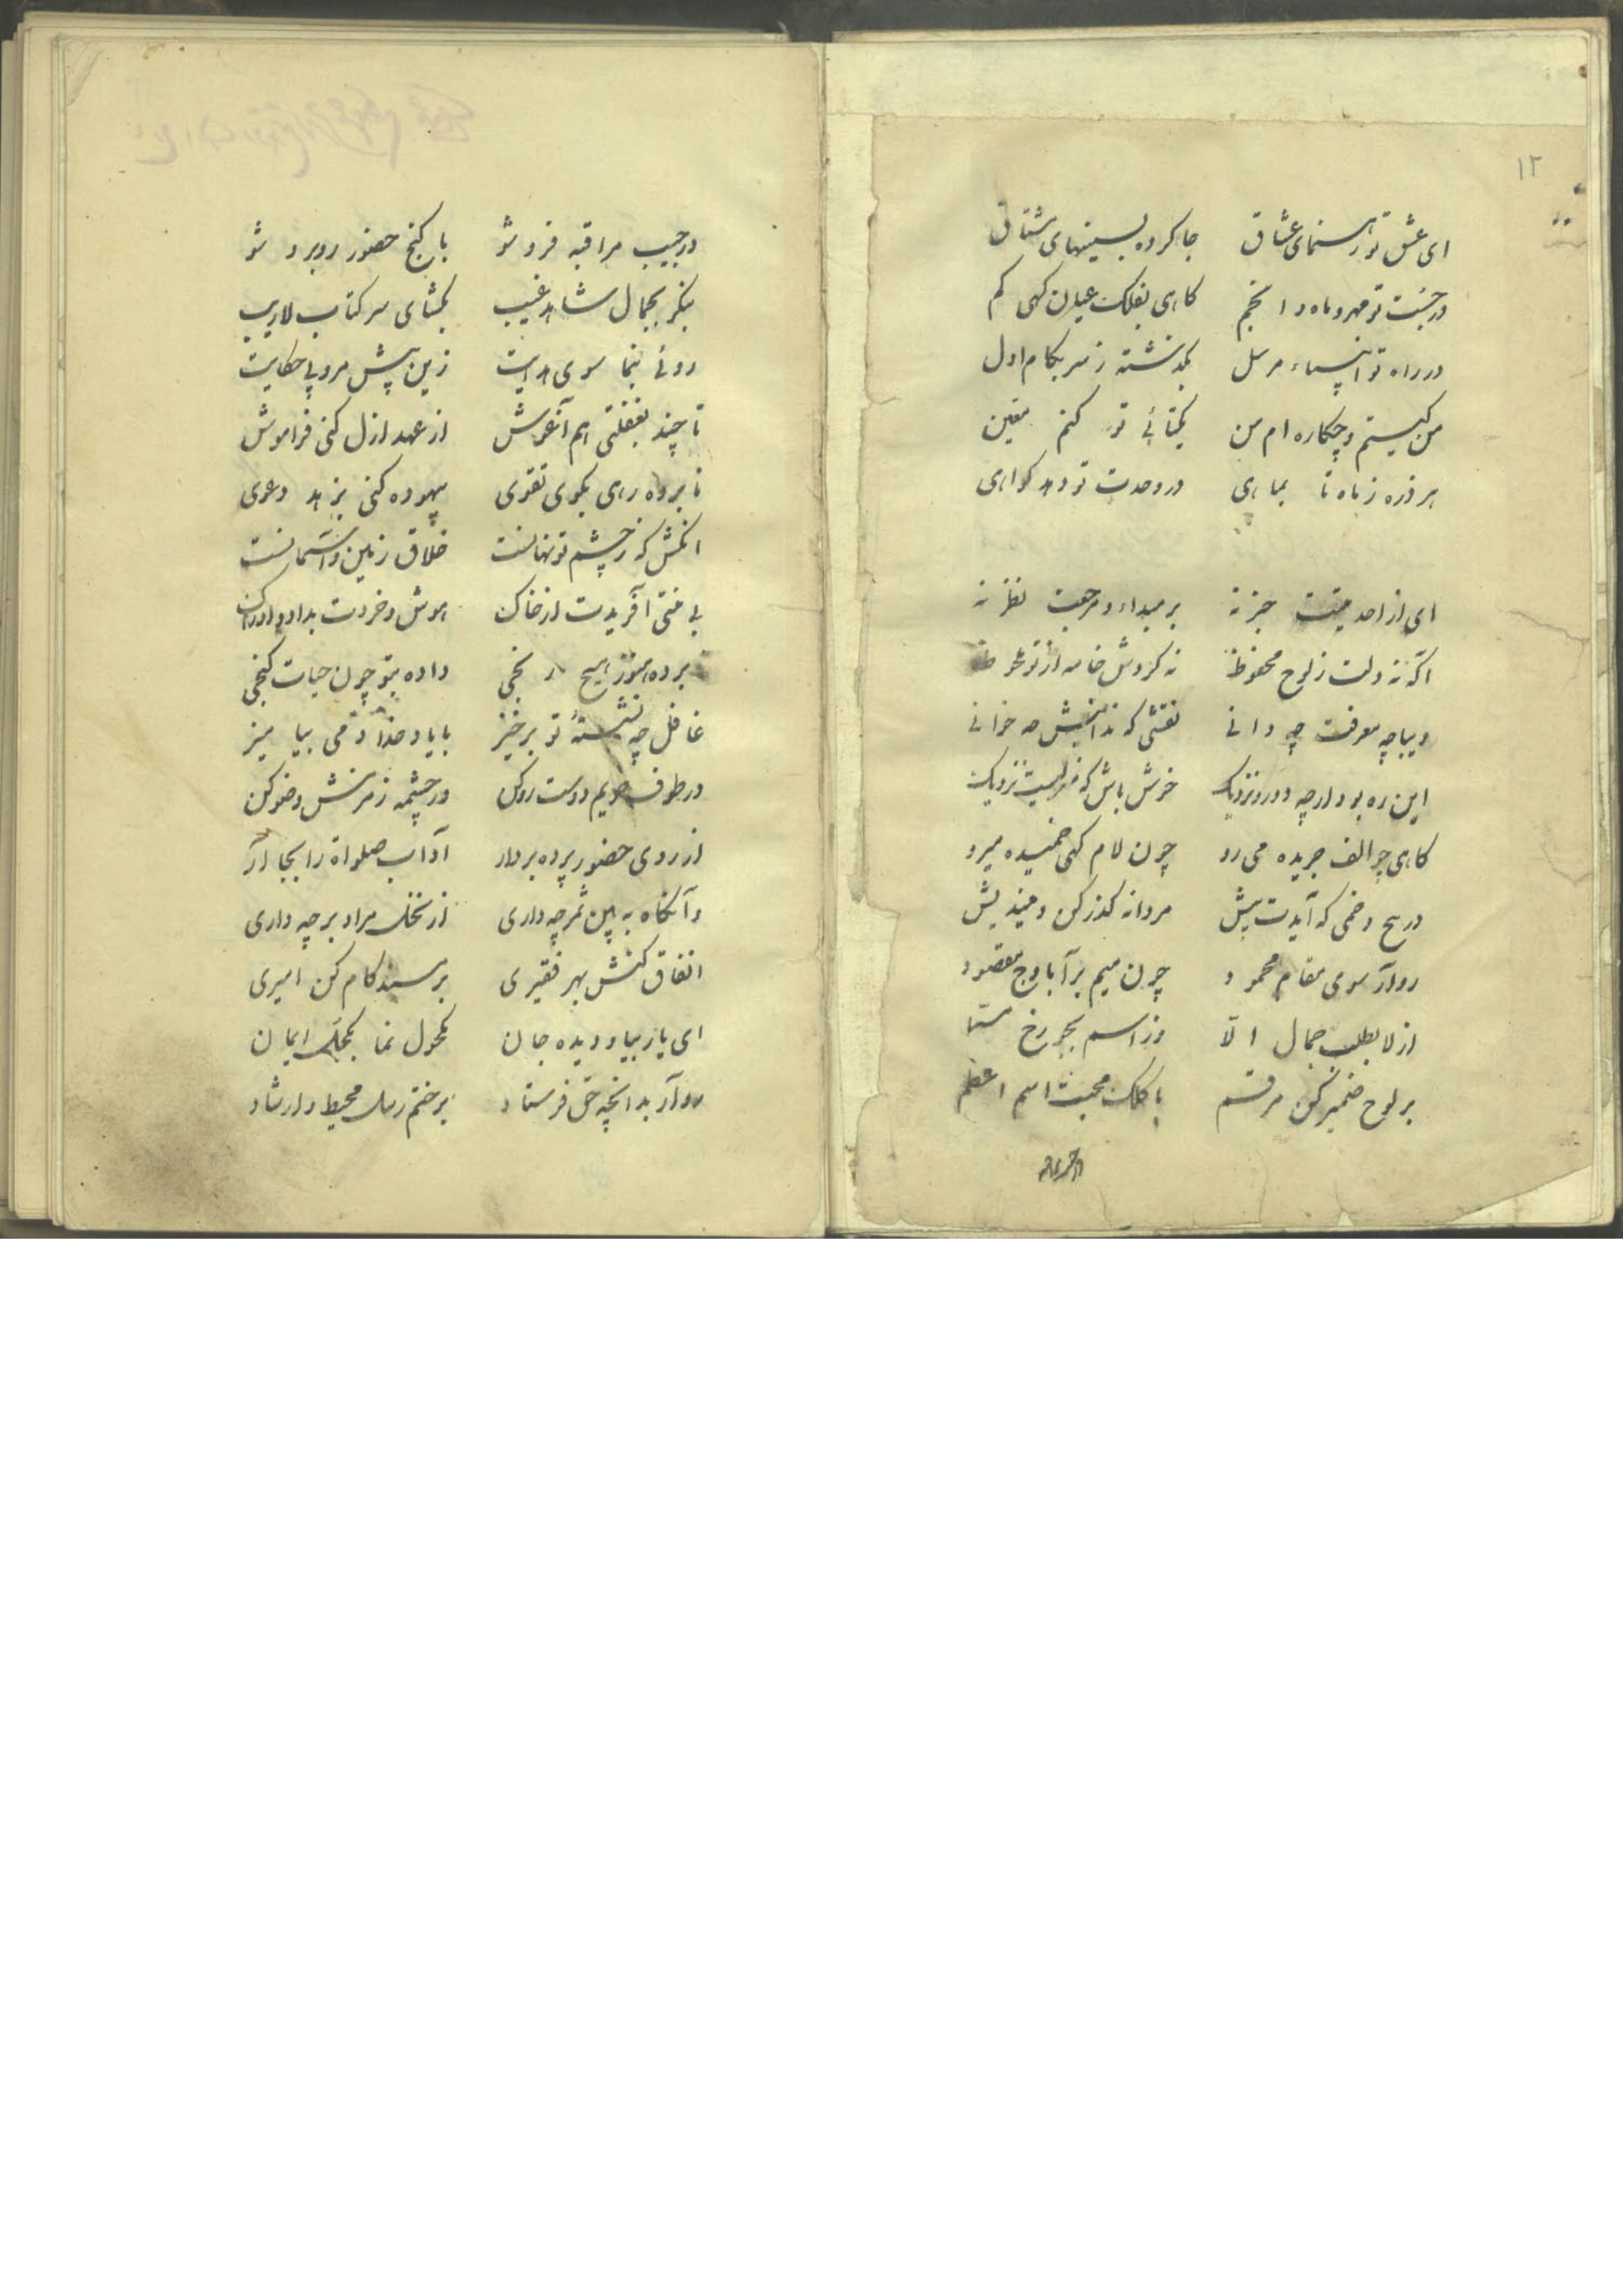 ۱۲
ای عشق تو رهنمای عشاق جا کرده بسینهای مشتاق
در جنبت تو مهر و ماه و انجم کاهی بفلک عیان کهی کم
در راه تو انبیاء مرسل بگذشته ز سر بکام اول
من کیستم و چکاره ام من یکتائی تو کنم مبین
هر ذره ز ماه تا بماهی در وحدت تو دهد کواهی
ای از احدیتت خبر نه بر مبداء و مرجعت نظر نه
اگه نه دلت ز لوح محفوظ نه کردش خامه از تو محظوظ
دیباچه معرفت چه دانی نقشی که ندانیش چه خوانی
این ره بود ارچه دور و نزدیک خوش باش که منزلیست نزدیک
کاهی چو الف جریده می رو چون لام کهی خمیده میرو
در هیچ و خمی که آیدت پیش مردانه کذر کن و میندیش
رو آر سوی مقام محمود چون میم برآ باوج مقصود
از لا بطلب جمال الّا وز اسم بجو رخ مسما
بر لوح ضمیر کن مرقسم با کلک محبت اسم اعظم
در جیب مراقبه فرو شو با کنج حضور روبرو شو
بنکر بجمال شاهد غیب بکشای سر کتاب لاریب
روئی بنما سوی هدایت زین پیش مرو پی حکایت
تا چند بغفلتی هم آغوش از عهد ازل کنی فراموش
نابرده رهی بکوی تقوی بیهوده کنی بزهد دعوی
انکش که ز چشم تو نهانست خلاق زمین و آسمانست
بی منتی آفریدت از خاک هوش و خردت بداد و ادراک
نبرده هنوز هیچ رنجی داده بتو چون حیات کنجی
غافل چه نشستهٔ تو برخیز با یاد خدا دمی بیامیز
در طوف حریم دوست رو کن در چشمه زمزمش وضو کن
از روی حضور پرده بردار آداب صلواة را بجا آر
وآنکاه به بین ثمر چه داری از نخل مراد بر چه داری
انفاق کنش بهر فقیری بر مسند کام کن امیری
ای یار بیا و دیده جان مکحول نما بکحل ایمان
رو آر بدانچه حق فرستاد بر ختم رسل محیط ارشاد